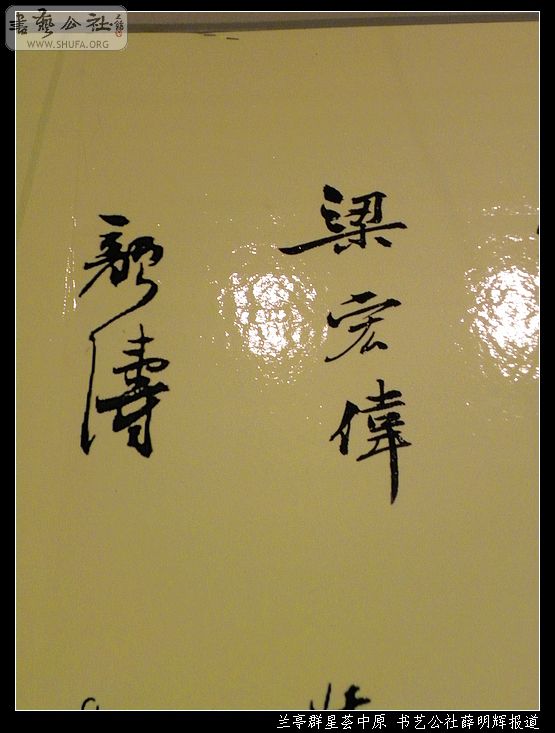 書藝公社
WWW.SHUFA.ORG
梁宏偉
顏濤
兰亭群星荟中原 书艺公社薛明辉报道